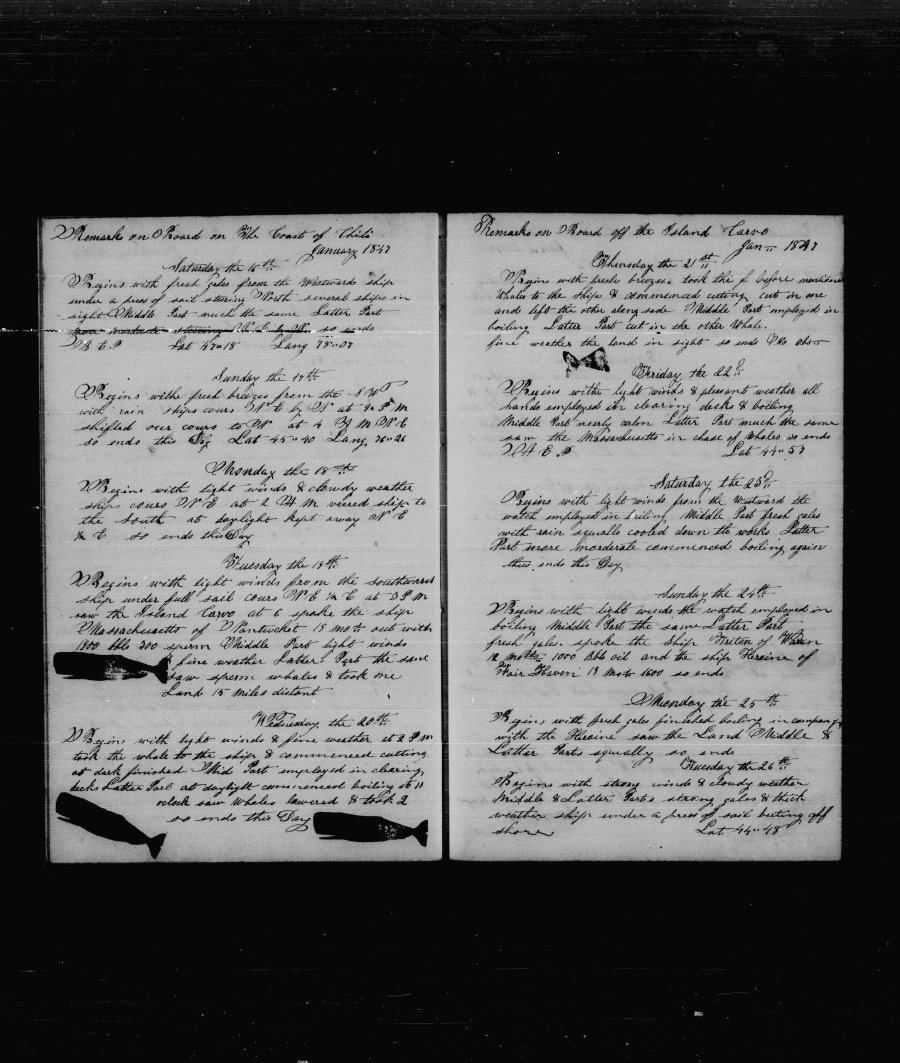 Remarks on Board on The Coast of Chili
January 1847
Saturday the 16th
Begins with fresh gales from the Westward ship
under a pres of sail stearing North several ships in
sight Middle Part much the same Latter Part
more morderate stearing N E by N. so ends
N A E P Lat 47"18 Lang 78"07
Sunday the 17th
Begins withe fresh breezes from the S W
with rain ships cours N E by N at 8 P M
shifted our cours to N at 4 A M N E
so ends this Day Lat 45"40 Lang 76"26
Monday the 18th
Begins with light winds & clowdy weather
ships cours N E at 2 A M veered ship to
the South at daylight kept away N E
& E so ends this Day
Tuesday the 19th
Begins with light winds from the southward
ship under full sail cours N E & E at 3 P M
saw the Island Carvo at 6 spoke the ship
Massachusetts of Nantucket 18 mots out with
1800 bbls 300 sperm Middle Part light winds
& fine weather Latter Part the same
saw sperm whales & took one
Land 15 miles distant
Wednesday the 20th
Begin with light winds & fine weather at 2 P M
took the whale to the ship & commenced cutting
at dark finished Mid Part employed in clearing
decks Latter Part at daylight commenced boiling at 11
oclock saw Whales lowered & took 2
so ends this Day
Remarks on Board off the Island Carvo
Jan" 1847
Thursday the 21st
Begin with fresh breezes took the before mentioned
Whales to the ship & commenced cutting cut in one
and left the other along side Middle Part employed in
boiling Latter Part cut in the other Whale.
fine weather the land in sight so ends No obs
Friday the 22d
Begins with light winds & pleasant weather all
hands employed in clearing decks & boiling
Middle Part nearly calm Latter Part much the same
saw the Massachusetts in chase of Whales so ends
N A E P Lat 44"57
Saturday the 23d
Begins with light winds from the Westward the
watch employed in boiling Middle Part fresh gales
with rain squalls cooled down the works Latter
Part more morderate commenced boiling again
thus ends this Day
Sunday the 24th
Begins with light winds the watch employed in
boiling Middle Part the same Latter Part
fresh gales. spoke the Ship Triton of Warren
18 mots 1000 Bbls oil and the ship Heroine of
Fair Haven 18 mots 1600 so ends
Monday the 25th
Begin with fresh gales finished boiling in company
with the Heroine saw the Land Middle &
Latter Parts squally so ends
Tuesday the 26th
Begins with strong winds & cloudy weather
Middle & Latter Parts strong gales & thick
weather ship under a press of sail beting off
shore Lat 44"48